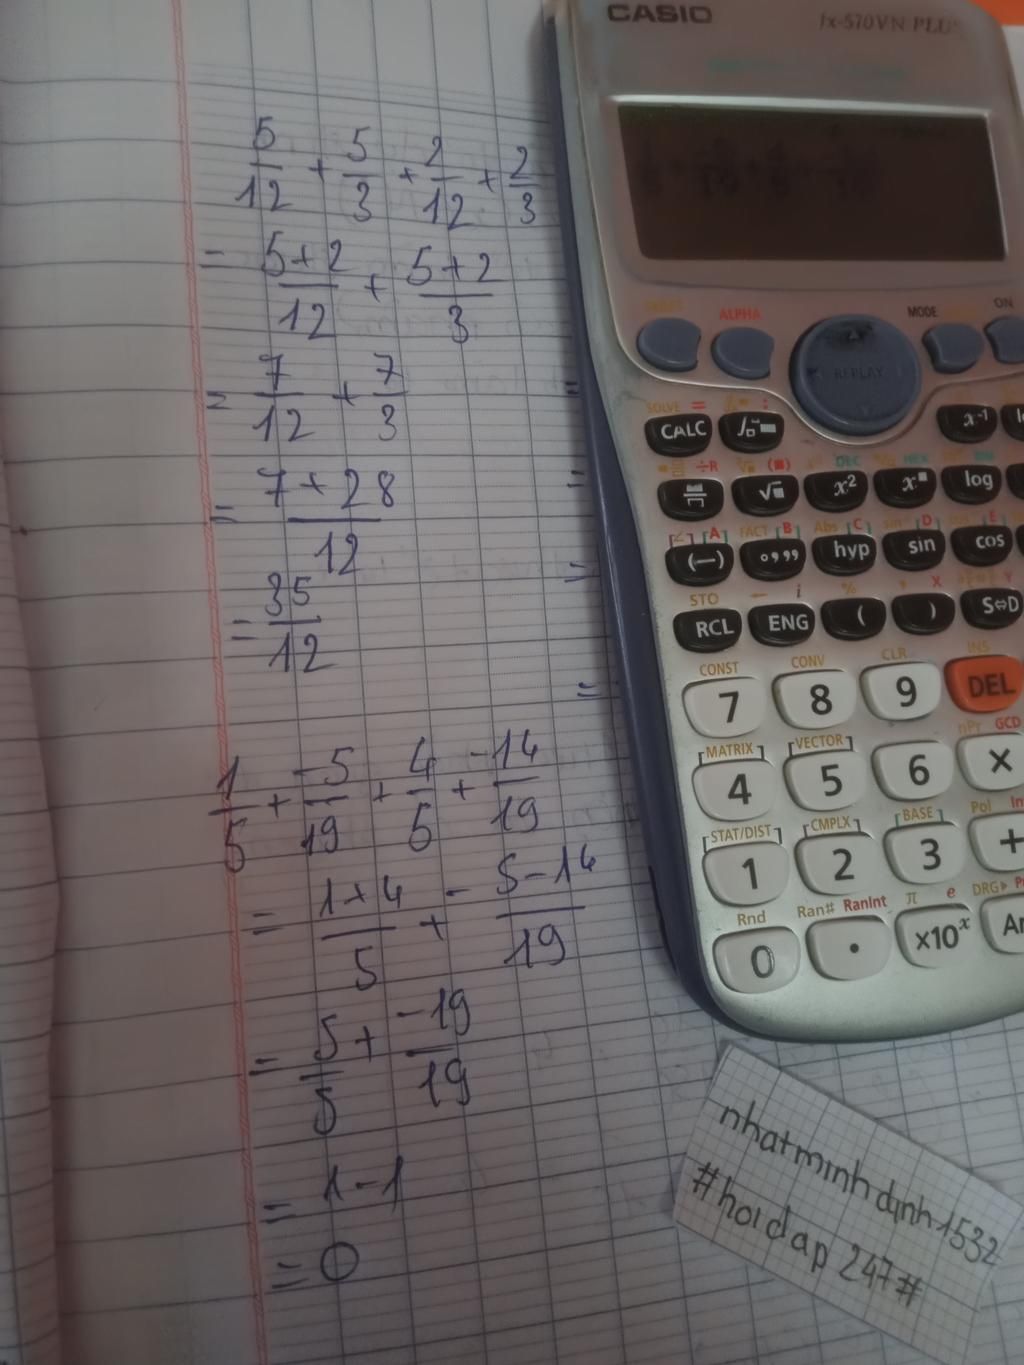 5/12 + 5/3 + 2/12 + 2/3
= (5+2)/12 + (5+2)/3
= 7/12 + 7/3
= (7+28)/12
= 35/12
1/5 + -5/19 + 4/5 + -14/19
= (1+4)/5 + (-5-14)/19
= 5/5 + -19/19
= 1-1
= 0
=
=
=
=
CASIO
fx-570VN PLUS
SHIFT ALPHA MODE ON
REPLAY
SOLVE =
CALC x⁻¹
÷R DEC HEX
√ x² log
[A] FACT [B] Abs [C] [D] [E]
(—) °,,, hyp sin cos
STO ← i % , X Y
RCL ENG ( ) S⇔D
CONST CONV CLR INS
7 8 9 DEL
[MATRIX] [VECTOR] nPr GCD
4 5 6 ×
[STAT/DIST] [CMPLX] [BASE] Pol
1 2 3 +
Rnd Ran# RanInt π e DRG▸
0 . ×10ˣ
nhatminhdinh1532
#hoidap 247#